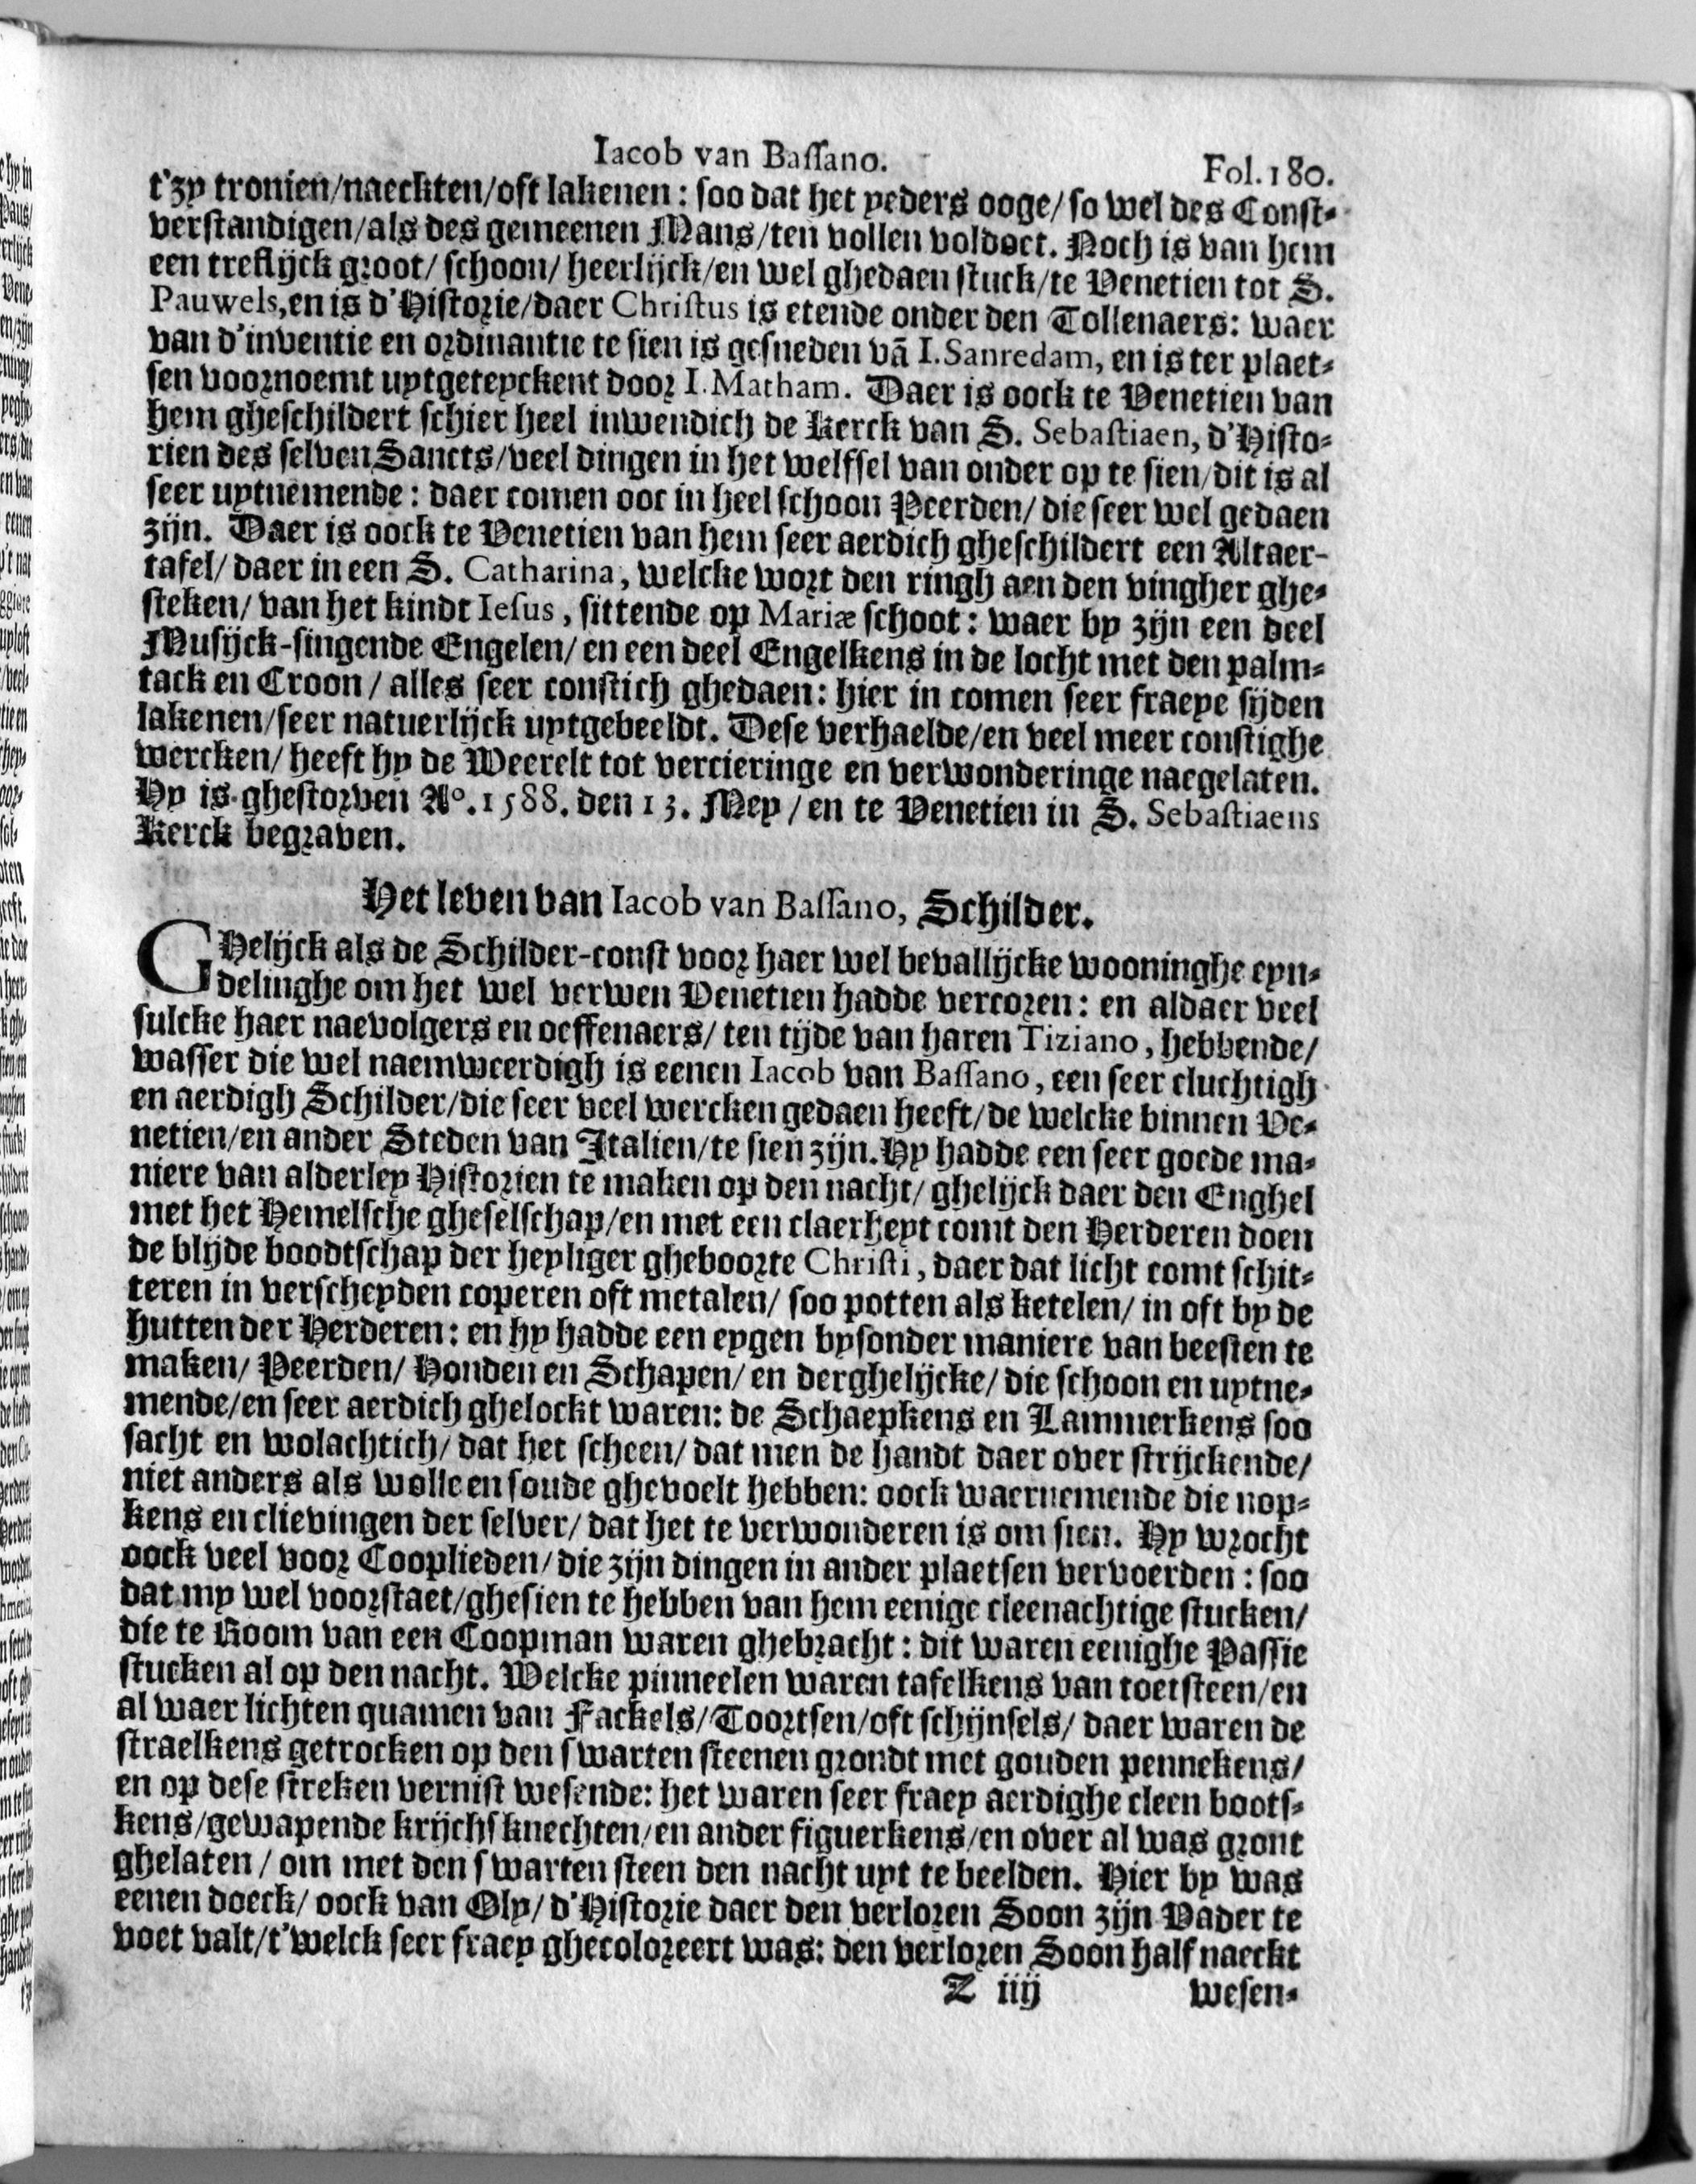 Iacob van Bassano. Fol. 180.
t'zy tronien/naeckten/oft lakenen: soo dat het yeders ooge/so wel des Const-
verstandigen/als des gemeenen Mans/ten vollen voldoet. Noch is van hem
een treflijck groot/ schoon/ heerlijck/en wel ghedaen stuck/te Venetien tot S.
Pauwels, en is d'Historie/daer Christus is etende onder den Tollenaers: waer
van d'inventie en ordinantie te sien is gesneden vã I. Sanredam, en is ter plaet-
sen voornoemt uytgeteyckent door I. Matham. Daer is oock te Venetien van
hem gheschildert schier heel inwendich de Kerck van S. Sebastiaen, d'Histo-
rien des selven Sancts/veel dingen in het welfsel van onder op te sien/dit is al
seer uytnemende: daer comen ooc in heel schoon Peerden/ die seer wel gedaen
zijn. Daer is oock te Venetien van hem seer aerdich gheschildert een Altaer-
tafel/ daer in een S. Catharina, welcke wort den ringh aen den vingher ghe-
steken/ van het kindt Iesus, sittende op Mariæ schoot: waer by zijn een deel
Musijck-singende Engelen/ en een deel Engelkens in de locht met den palm-
tack en Croon / alles seer constich ghedaen: hier in comen seer fraeye sijden
lakenen/seer natuerlijck uytgebeeldt. Dese verhaelde/en veel meer constighe
wercken/ heeft hy de Weerelt tot vercieringe en verwonderinge naegelaten.
Hy is ghestorven Aº. 1588. den 13. Mey / en te Venetien in S. Sebastiaens
Kerck begraven.
Het leven van Iacob van Bassano, Schilder.
GHelijck als de Schilder-const voor haer wel bevallijcke wooninghe eyn-
delinghe om het wel verwen Venetien hadde vercoren: en aldaer veel
sulcke haer naevolgers en oeffenaers/ ten tijde van haren Tiziano, hebbende/
wasser die wel naemweerdigh is eenen Iacob van Bassano, een seer cluchtigh
en aerdigh Schilder/die seer veel wercken gedaen heeft/de welcke binnen Ve-
netien/en ander Steden van Italien/te sien zijn. Hy hadde een seer goede ma-
niere van alderley Historien te maken op den nacht/ ghelijck daer den Enghel
met het Hemelsche gheselschap/en met een claerheyt comt den Herderen doen
de blijde boodtschap der heyliger gheboorte Christi, daer dat licht comt schit-
teren in verscheyden coperen oft metalen/ soo potten als ketelen/ in oft by de
hutten der Herderen: en hy hadde een eygen bysonder maniere van beesten te
maken/ Peerden/ Honden en Schapen/ en derghelijcke/ die schoon en uytne-
mende/en seer aerdich ghelockt waren: de Schaepkens en Lammerkens soo
sacht en wolachtich/ dat het scheen/ dat men de handt daer over strijckende/
niet anders als wolle en soude ghevoelt hebben: oock waernemende die nop-
kens en clievingen der selver/ dat het te verwonderen is om sien. Hy wrocht
oock veel voor Cooplieden/die zijn dingen in ander plaetsen vervoerden: soo
dat my wel voorstaet/ghesien te hebben van hem eenige cleenachtige stucken/
die te Room van een Coopman waren ghebracht: dit waren eenighe Passie
stucken al op den nacht. Welcke pinneelen waren tafelkens van toetsteen/en
al waer lichten quamen van Fackels/Toortsen/oft schijnsels/ daer waren de
straelkens getrocken op den swarten steenen grondt met gouden pennekens/
en op dese streken vernist wesende: het waren seer fraey aerdighe cleen boots-
kens/gewapende krijchsknechten/en ander figuerkens/en over al was gront
ghelaten / om met den swarten steen den nacht uyt te beelden. Hier by was
eenen doeck/ oock van Oly/ d'Historie daer den verloren Soon zijn Vader te
voet valt/t'welck seer fraey ghecoloreert was: den verloren Soon half naeckt
Z iiij wesen-